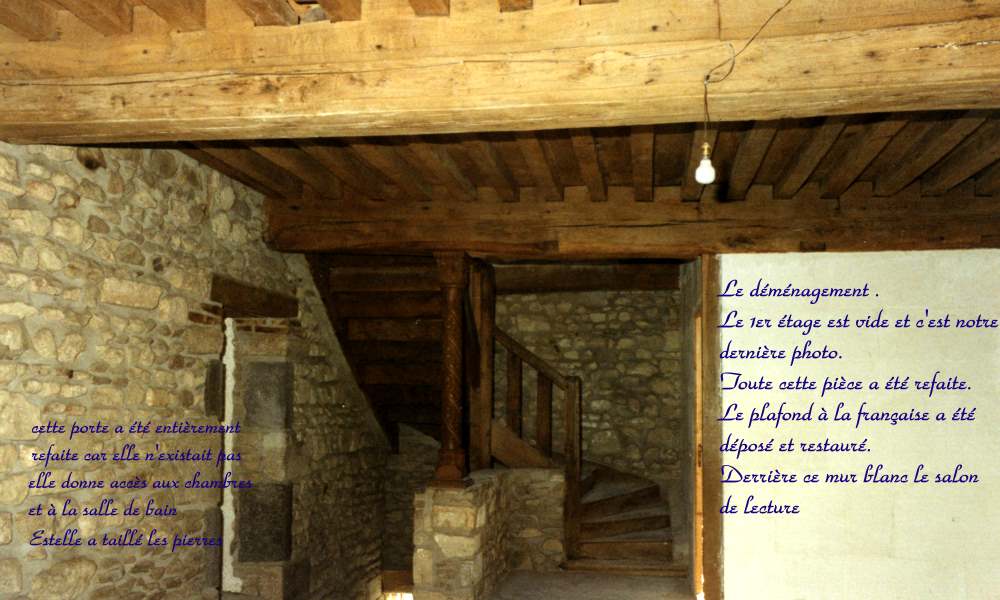 cette porte a été entièrement
refaite car elle n'existait pas
elle donne accès aux chambres
et à la salle de bain
Estelle a taillé les pierres
Le déménagement .
Le 1er étage est vide et c'est notre
dernière photo.
Toute cette pièce a été refaite.
Le plafond à la française a été
déposé et restauré.
Derrière ce mur blanc le salon
de lecture